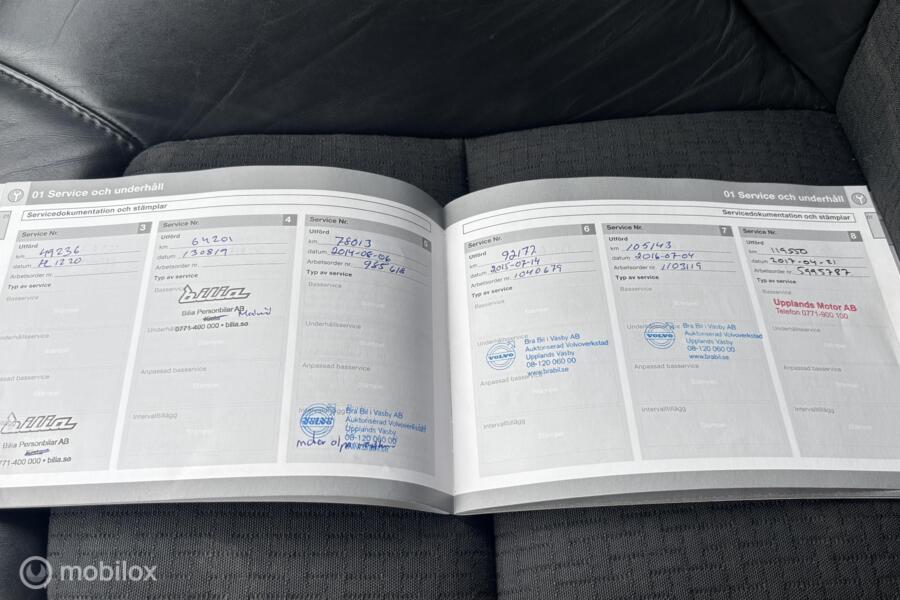 01 Service och underhåll
Servicedokumentation och stämplar
Service Nr. 3
Utförd
km 49236
datum
Arbetsorder nr.
Typ av service
Basservice
Stämpel
Underhållsservice
Stämpel
Anpassad basservice
Stämpel
Intervalltillägg
bilia
Bilia Personbilar AB
771-400 000 • bilia.se
Service Nr. 4
Utförd
km 64201
datum 130819
Arbetsorder nr.
Typ av service
Basservice
bilia
Bilia Personbilar AB
Underhållsservice
0771-400 000 • bilia.se
Stämpel
Anpassad basservice
Stämpel
Intervalltillägg
Stämpel
Service Nr. 5
Utförd
km 78013
datum 2014-08-06
Arbetsorder nr. 985618
Typ av service
Basservice
Stämpel
Underhållsservice
Stämpel
Anpassad basservice
Stämpel
Intervalltillägg
VOLVO
Bra Bil i Väsby AB
Auktoriserad Volvoverkstad
Upplands Väsby
08-120 060 00
motor
01 Service och underhåll
Servicedokumentation och stämplar
Service Nr. 6
Utförd
km 92177
datum 2015-07-14
Arbetsorder nr. 1040679
Typ av service
Basservice
Stämpel
Underhållsservice
VOLVO
Bra Bil i Väsby AB
Auktoriserad Volvoverkstad
Upplands Väsby
08-120 060 00
www.brabil.se
Anpassad basservice
Stämpel
Intervalltillägg
Stämpel
Service Nr. 7
Utförd
km 105143
datum 2016-07-04
Arbetsorder nr. 1103119
Typ av service
Basservice
Stämpel
Underhållsservice
VOLVO
Bra Bil i Väsby AB
Auktoriserad Volvoverkstad
Upplands Väsby
08-120 060 00
www.brabil.se
Anpassad basservice
Stämpel
Intervalltillägg
Stämpel
Service Nr. 8
Utförd
km 119550
datum 2017-04-21
Arbetsorder nr. 5995787
Typ av service
Basservice
Upplands Motor AB
Telefon 0771-900 100
Underhållsservice
Stämpel
Anpassad basservice
Stämpel
Intervalltillägg
Stämpel
mobilox